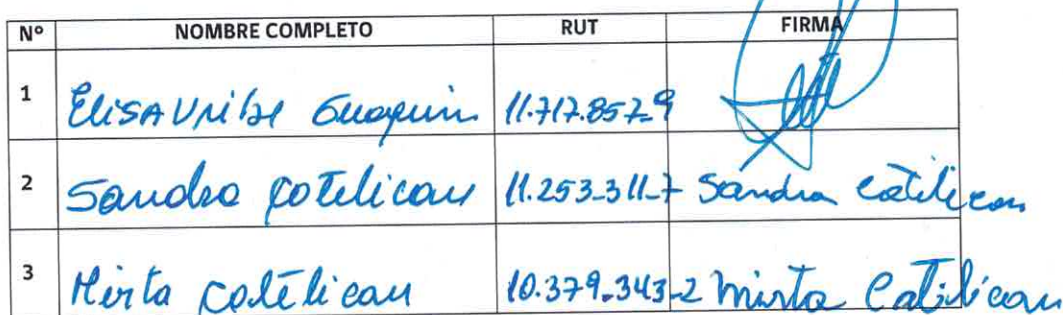 Nº NOMBRE COMPLETO RUT FIRMA
1 Elisa Uribe Guaquin 11.717.857-9
2 Sandra Cotelican 11.253-311-7 Sandra Catelican
3 Mirta Catelican 10.379.343-2 Mirta Catilican